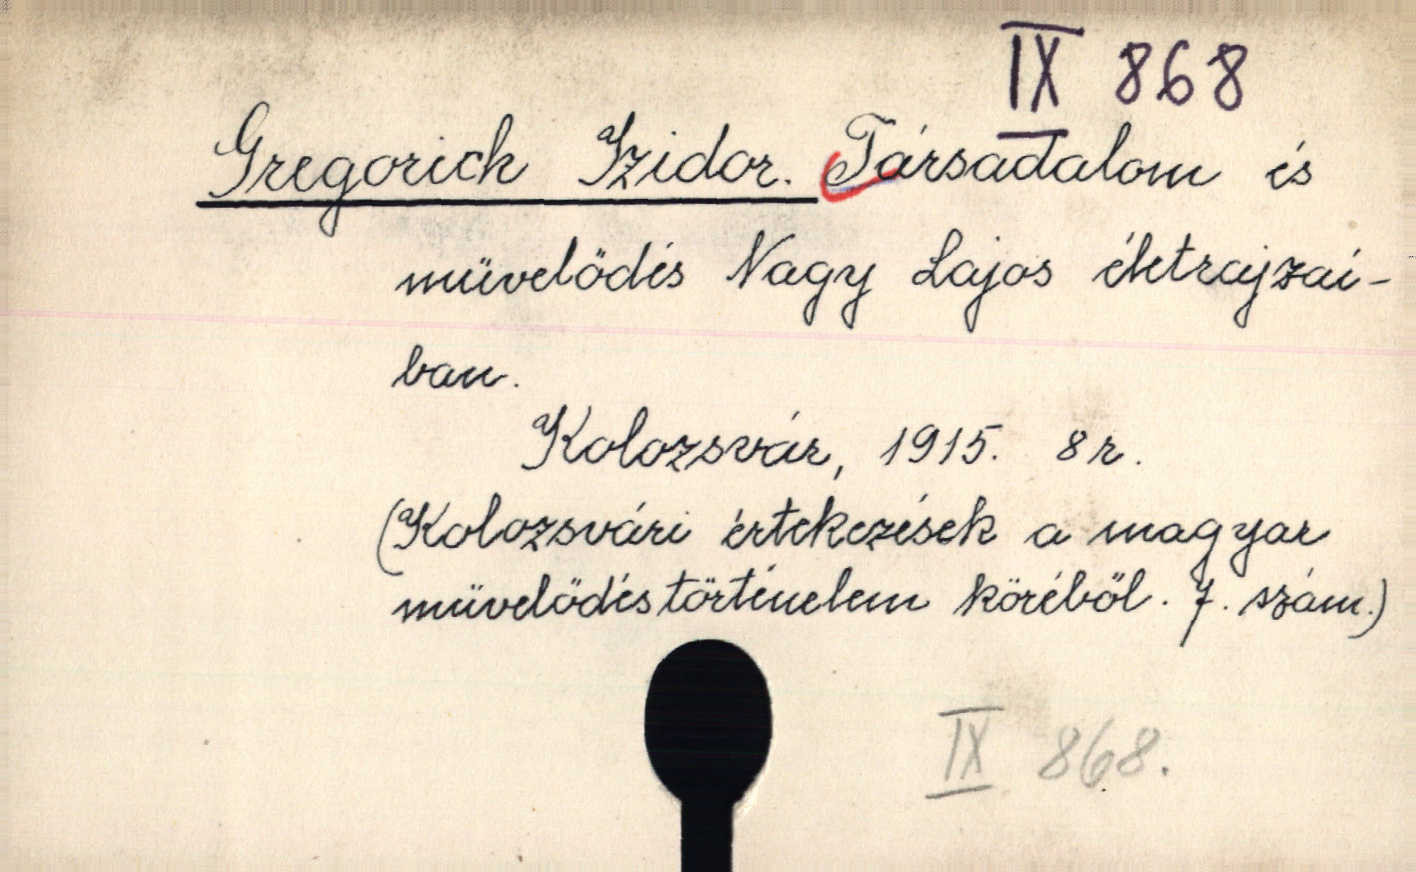 IX 868
Gregorich Izidor. Társadalom és
müvelödés Nagy Lajos életrajzai-
ban.
Kolozsvár, 1915. 8 r.
(Kolozsvári értekezések a magyar
müvelödéstörténelem köréből. 7. szám.)
IX 868.